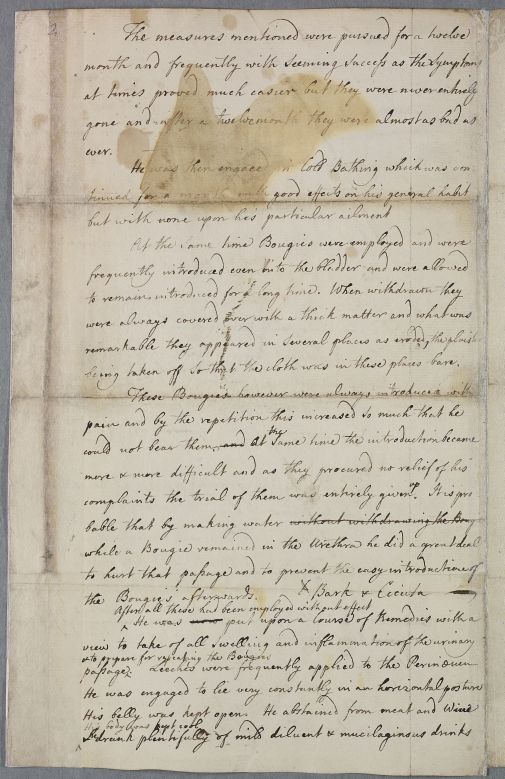 The measures mentioned were pursued for a twelve
month and frequently with seeming Success as the Symptoms
at times proved much easier but they were never entirely
gone and after a twelvemonth they were almost as bad as
ever.
He was then engaged in Cold Bathing which was con
tinued for a month with good effects on his general habit
but with none upon his particular ailment
At the same time Bougies were employed and were
frequently introduced even into the bladder and were allowed
to remain introduced for a long time. When withdrawn they
were always covered over with a thick matter and what was
remarkable they appeared in several places as eroded, the plaister
being taken off so that the cloth was in these places bare.
These Bougies however were always introduced with
pain and by the repetition this increased so much that he
could not bear them, and at the same time the introduction became
more & more difficult and as they procured no relief of his
complaints the trial of them was entirely given up. It is pro
bable that by making water without withdrawing the Bougie
while a Bougie remained in the Urethra he did a great deal
to hurt that passage and to prevent the easy introduction of
the Bougies afterwards. X Bark & Cicuta
After all these had been employed without effect
He was put upon a course of Remedies with a
view to take of all swelling and inflammation of the urinary
& to prepare for repeating the Bougies
passage. Leeches were frequently applied to the Perinæum
He was engaged to lie very constantly in an horizontal posture
His belly was kept open. He abstained from meat and Wine
body was kept cool
he drank plentifully of mild diluent & mucilaginous drinks